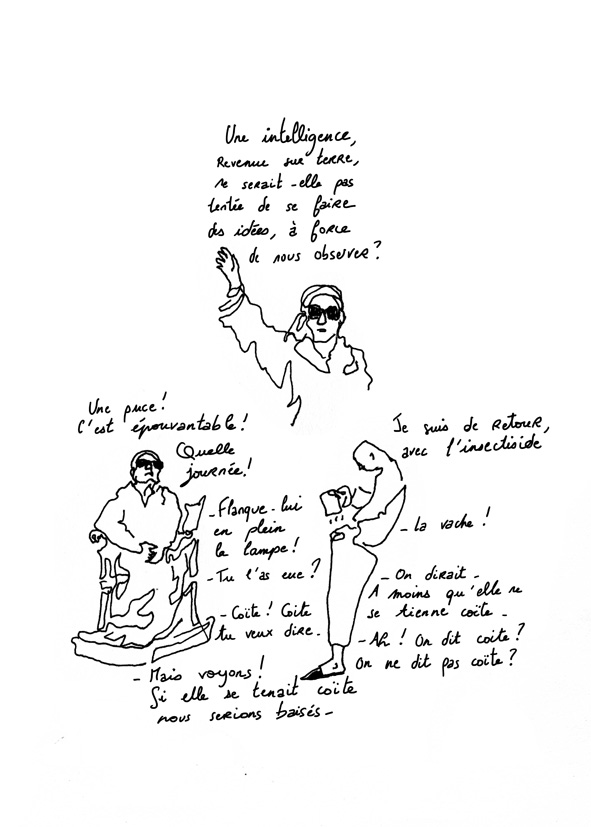 Une intelligence,
Revenue sur terre,
ne serait-elle pas
tentée de se faire
des idées, à force
de nous observer?
Une puce!
C'est épouvantable!
Quelle
journée!
Je suis de retour,
avec l'insectiside
- Flanque-lui
en plein
la lampe!
- Tu l'as eue?
- Coïte! Coite
tu veux dire.
- Mais voyons!
Si elle se tenait coïte
nous serions baisés -
- La vache!
- On dirait -
A moins qu'elle ne
se tienne coïte -
- Ah! On dit coite?
On ne dit pas coïte?